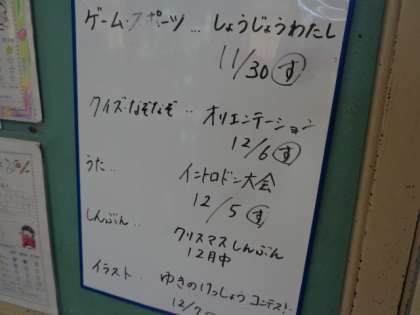 ゲーム・スポーツ… しょうじょうわたし
11/30 す
クイズなぞなぞ‥ オリエンテーション
12/6 す
うた‥ イントロドン大会
12/5 す
しんぶん‥ クリスマスしんぶん
12月中
イラスト‥ ゆきのけっしょうコンテスト
12/7